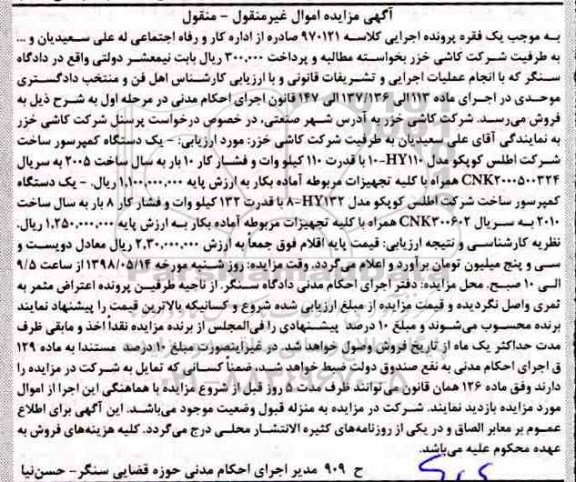 آگهی مزایده اموال غیرمنقول – منقول
به موجب یک فقره پرونده اجرایی کلاسه ۹۷۰۱۲۱ صادره از اداره کار و رفاه اجتماعی له علی سعیدیان و ...
به طرفیت شرکت کاشی خزر بخواسته مطالبه و پرداخت ۳۰۰,۰۰۰ ریال بابت نیمعشر دولتی واقع در دادگاه
سنگر که با انجام عملیات اجرایی و تشریفات قانونی و با ارزیابی کارشناس اهل فن و منتخب دادگستری
موحدی در اجرای ماده ۱۱۳ الی ۱۳۷/۱۳۶ الی ۱۴۷ قانون اجرای احکام مدنی در مرحله اول به شرح ذیل به
فروش می‌رسد. شرکت کاشی خزر به آدرس شهر صنعتی، در خصوص درخواست پرسنل شرکت کاشی خزر
به نمایندگی آقای علی سعیدیان به طرفیت شرکت کاشی خزر: مورد ارزیابی: – یک دستگاه کمپرسور ساخت
شرکت اطلس کوپکو مدل HY۱۱۰–۱۰ با قدرت ۱۱۰ کیلو وات و فشار کار ۱۰ بار به سال ساخت ۲۰۰۵ به سریال
CNK۲۰۰۰۵۰۰۳۲۴ همراه با کلیه تجهیزات مربوطه آماده بکار به ارزش پایه ۱,۱۰۰,۰۰۰,۰۰۰ ریال. – یک دستگاه
کمپرسور ساخت شرکت اطلس کوپکو مدل HY۱۳۲–۸ با قدرت ۱۳۲ کیلو وات و فشار کار ۸ بار به سال ساخت
۲۰۱۰ به سریال CNK۳۰۰۶۰۲ همراه با کلیه تجهیزات مربوطه آماده بکار به ارزش پایه ۱,۲۵۰,۰۰۰,۰۰۰ ریال.
نظریه کارشناسی و نتیجه ارزیابی: قیمت پایه اقلام فوق جمعاً به ارزش ۲,۳۰,۰۰۰,۰۰۰ ریال معادل دویست و
سی و پنج میلیون تومان برآورد و اعلام می‌گردد. وقت مزایده: روز شنبه مورخه ۱۳۹۸/۰۵/۱۴ از ساعت ۹/۵
الی ۱۰ صبح. محل مزایده: دفتر اجرای احکام مدنی دادگاه سنگر. از ناحیه طرفین پرونده اعتراض مثمر به
ثمری واصل نگردیده و قیمت مزایده از مبلغ ارزیابی شده شروع و کسانیکه بالاترین قیمت را پیشنهاد نمایند
برنده محسوب می‌شوند و مبلغ ۱۰ درصد پیشنهادی را فی‌المجلس از برنده مزایده نقداً اخذ و مابقی ظرف
مدت حداکثر یک ماه از تاریخ فروش وصول خواهد شد. در غیراینصورت مبلغ ۱۰ درصد مستندا به ماده ۱۲۹
ق اجرای احکام مدنی به نفع صندوق دولت ضبط خواهد شد. ضمناً کسانی که تمایل به شرکت در مزایده را
دارند وفق ماده ۱۲۶ همان قانون می‌توانند ظرف مدت ۵ روز قبل از شروع مزایده با هماهنگی این اجرا از اموال
مورد مزایده بازدید نمایند. شرکت در مزایده به منزله قبول وضعیت موجود می‌باشد. این آگهی برای اطلاع
عموم بر معابر الصاق و در یکی از روزنامه‌های کثیره الانتشار محلی درج می‌گردد. کلیه هزینه‌های فروش به
عهده محکوم علیه می‌باشد.
ح ۹۰۹ مدیر اجرای احکام مدنی حوزه قضایی سنگر – حسن‌نیا